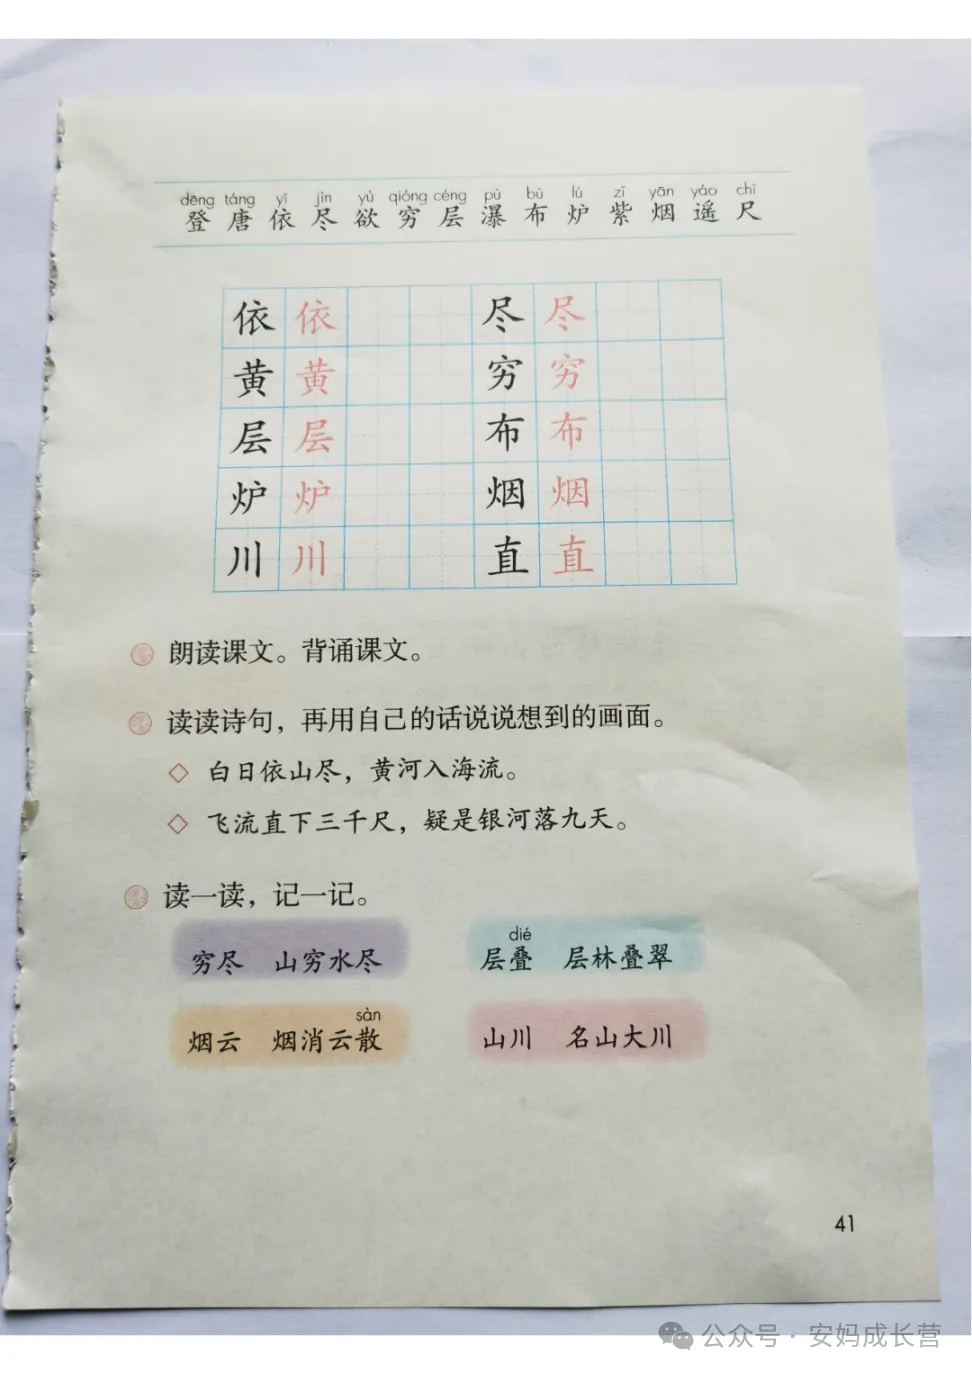 dēng táng yī jìn yù qióng céng pù bù lú zǐ yān yáo chǐ
登 唐 依 尽 欲 穷 层 瀑 布 炉 紫 烟 遥 尺
依 依 尽 尽
黄 黄 穷 穷
层 层 布 布
炉 炉 烟 烟
川 川 直 直
朗读课文。背诵课文。
读读诗句，再用自己的话说说想到的画面。
◇ 白日依山尽，黄河入海流。
◇ 飞流直下三千尺，疑是银河落九天。
读一读，记一记。
dié
穷尽 山穷水尽 层叠 层林叠翠
sàn
烟云 烟消云散 山川 名山大川
41
公众号 · 安妈成长营